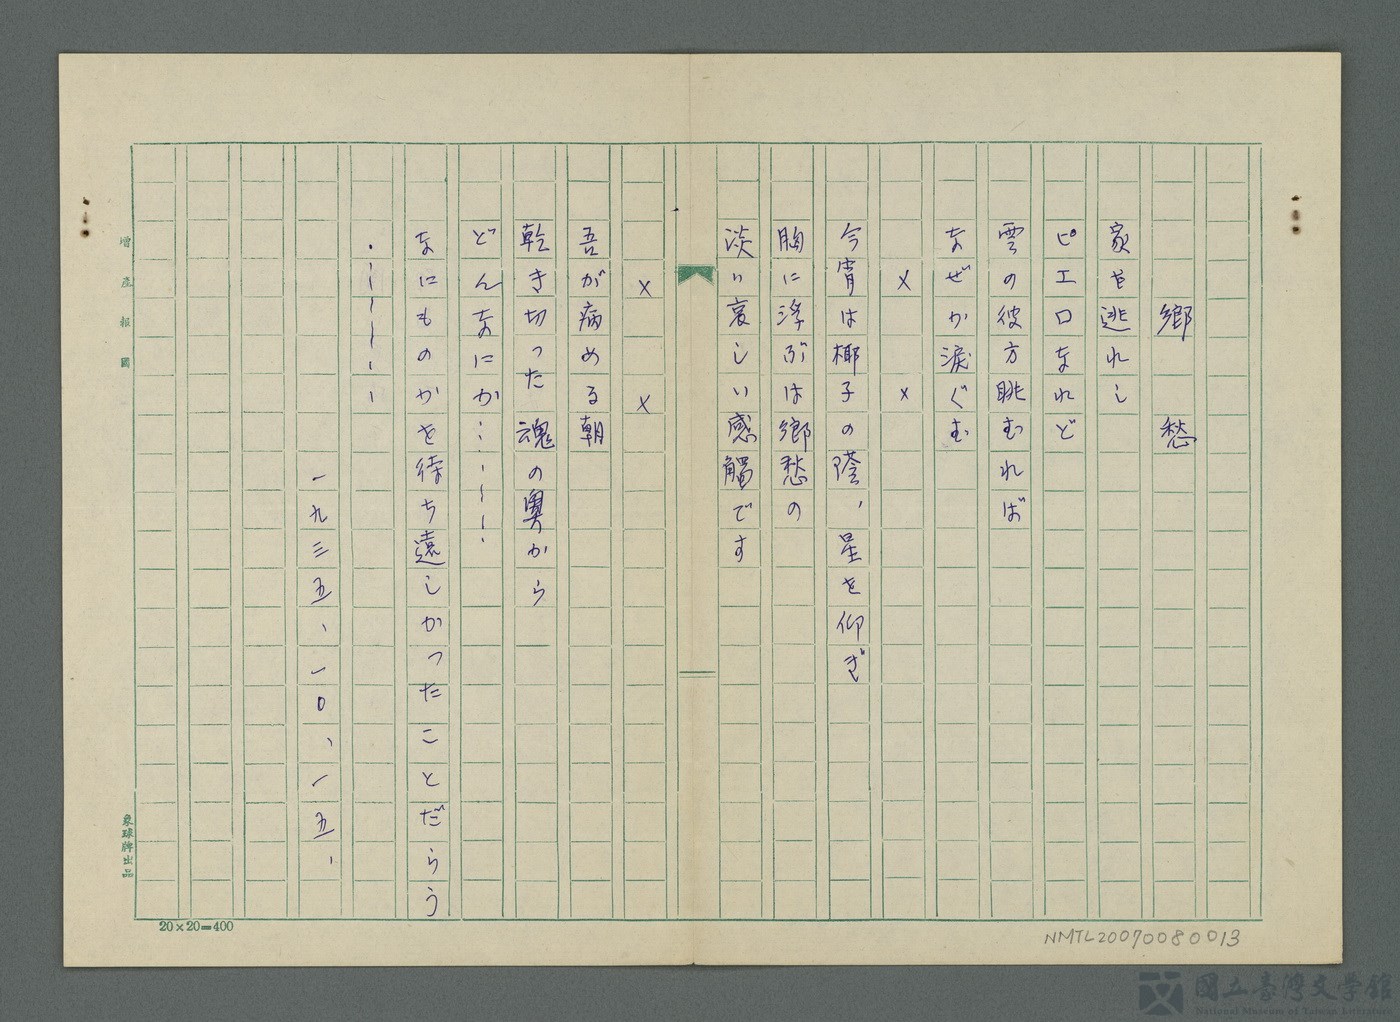 鄉愁
家を逃れし
ピエロなれど
雲の彼方眺むれば
なぜか涙ぐむ
× ×
今宵は椰子の蔭、星を仰ぎ
胸に浮ぶは鄉愁の
淡い哀しい感觸です
× ×
吾が病める朝
乾き切った魂の奥から
どんなにか………
なにものかを待ち遠しかったことだらう
………
一九三五、一〇、一五、
增產報國
象球牌出品
20×20=400
NMTL20070080013
國立臺灣文學館
National Museum of Taiwan Literature